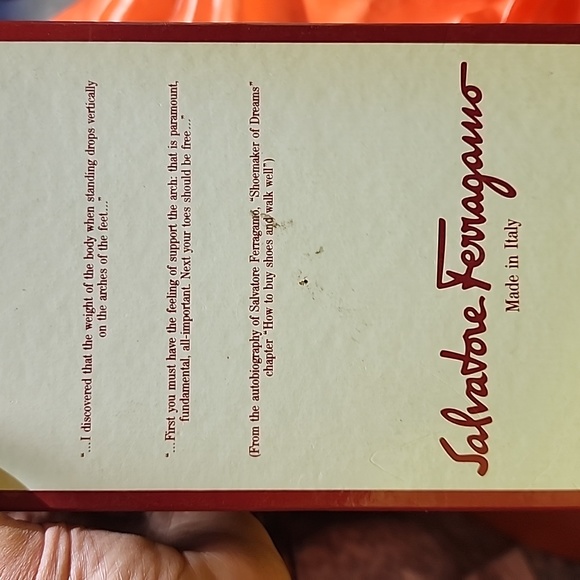 "...I discovered that the weight of the body when standing drops vertically
on the arches of the feet..."
"...First you must have the feeling of support the arch: that is paramount,
fundamental, all-important. Next your toes should be free..."
(From the autobiography of Salvatore Ferragamo, "Shoemaker of Dreams"
chapter "How to buy shoes and walk well")
Salvatore Ferragamo
Made in Italy